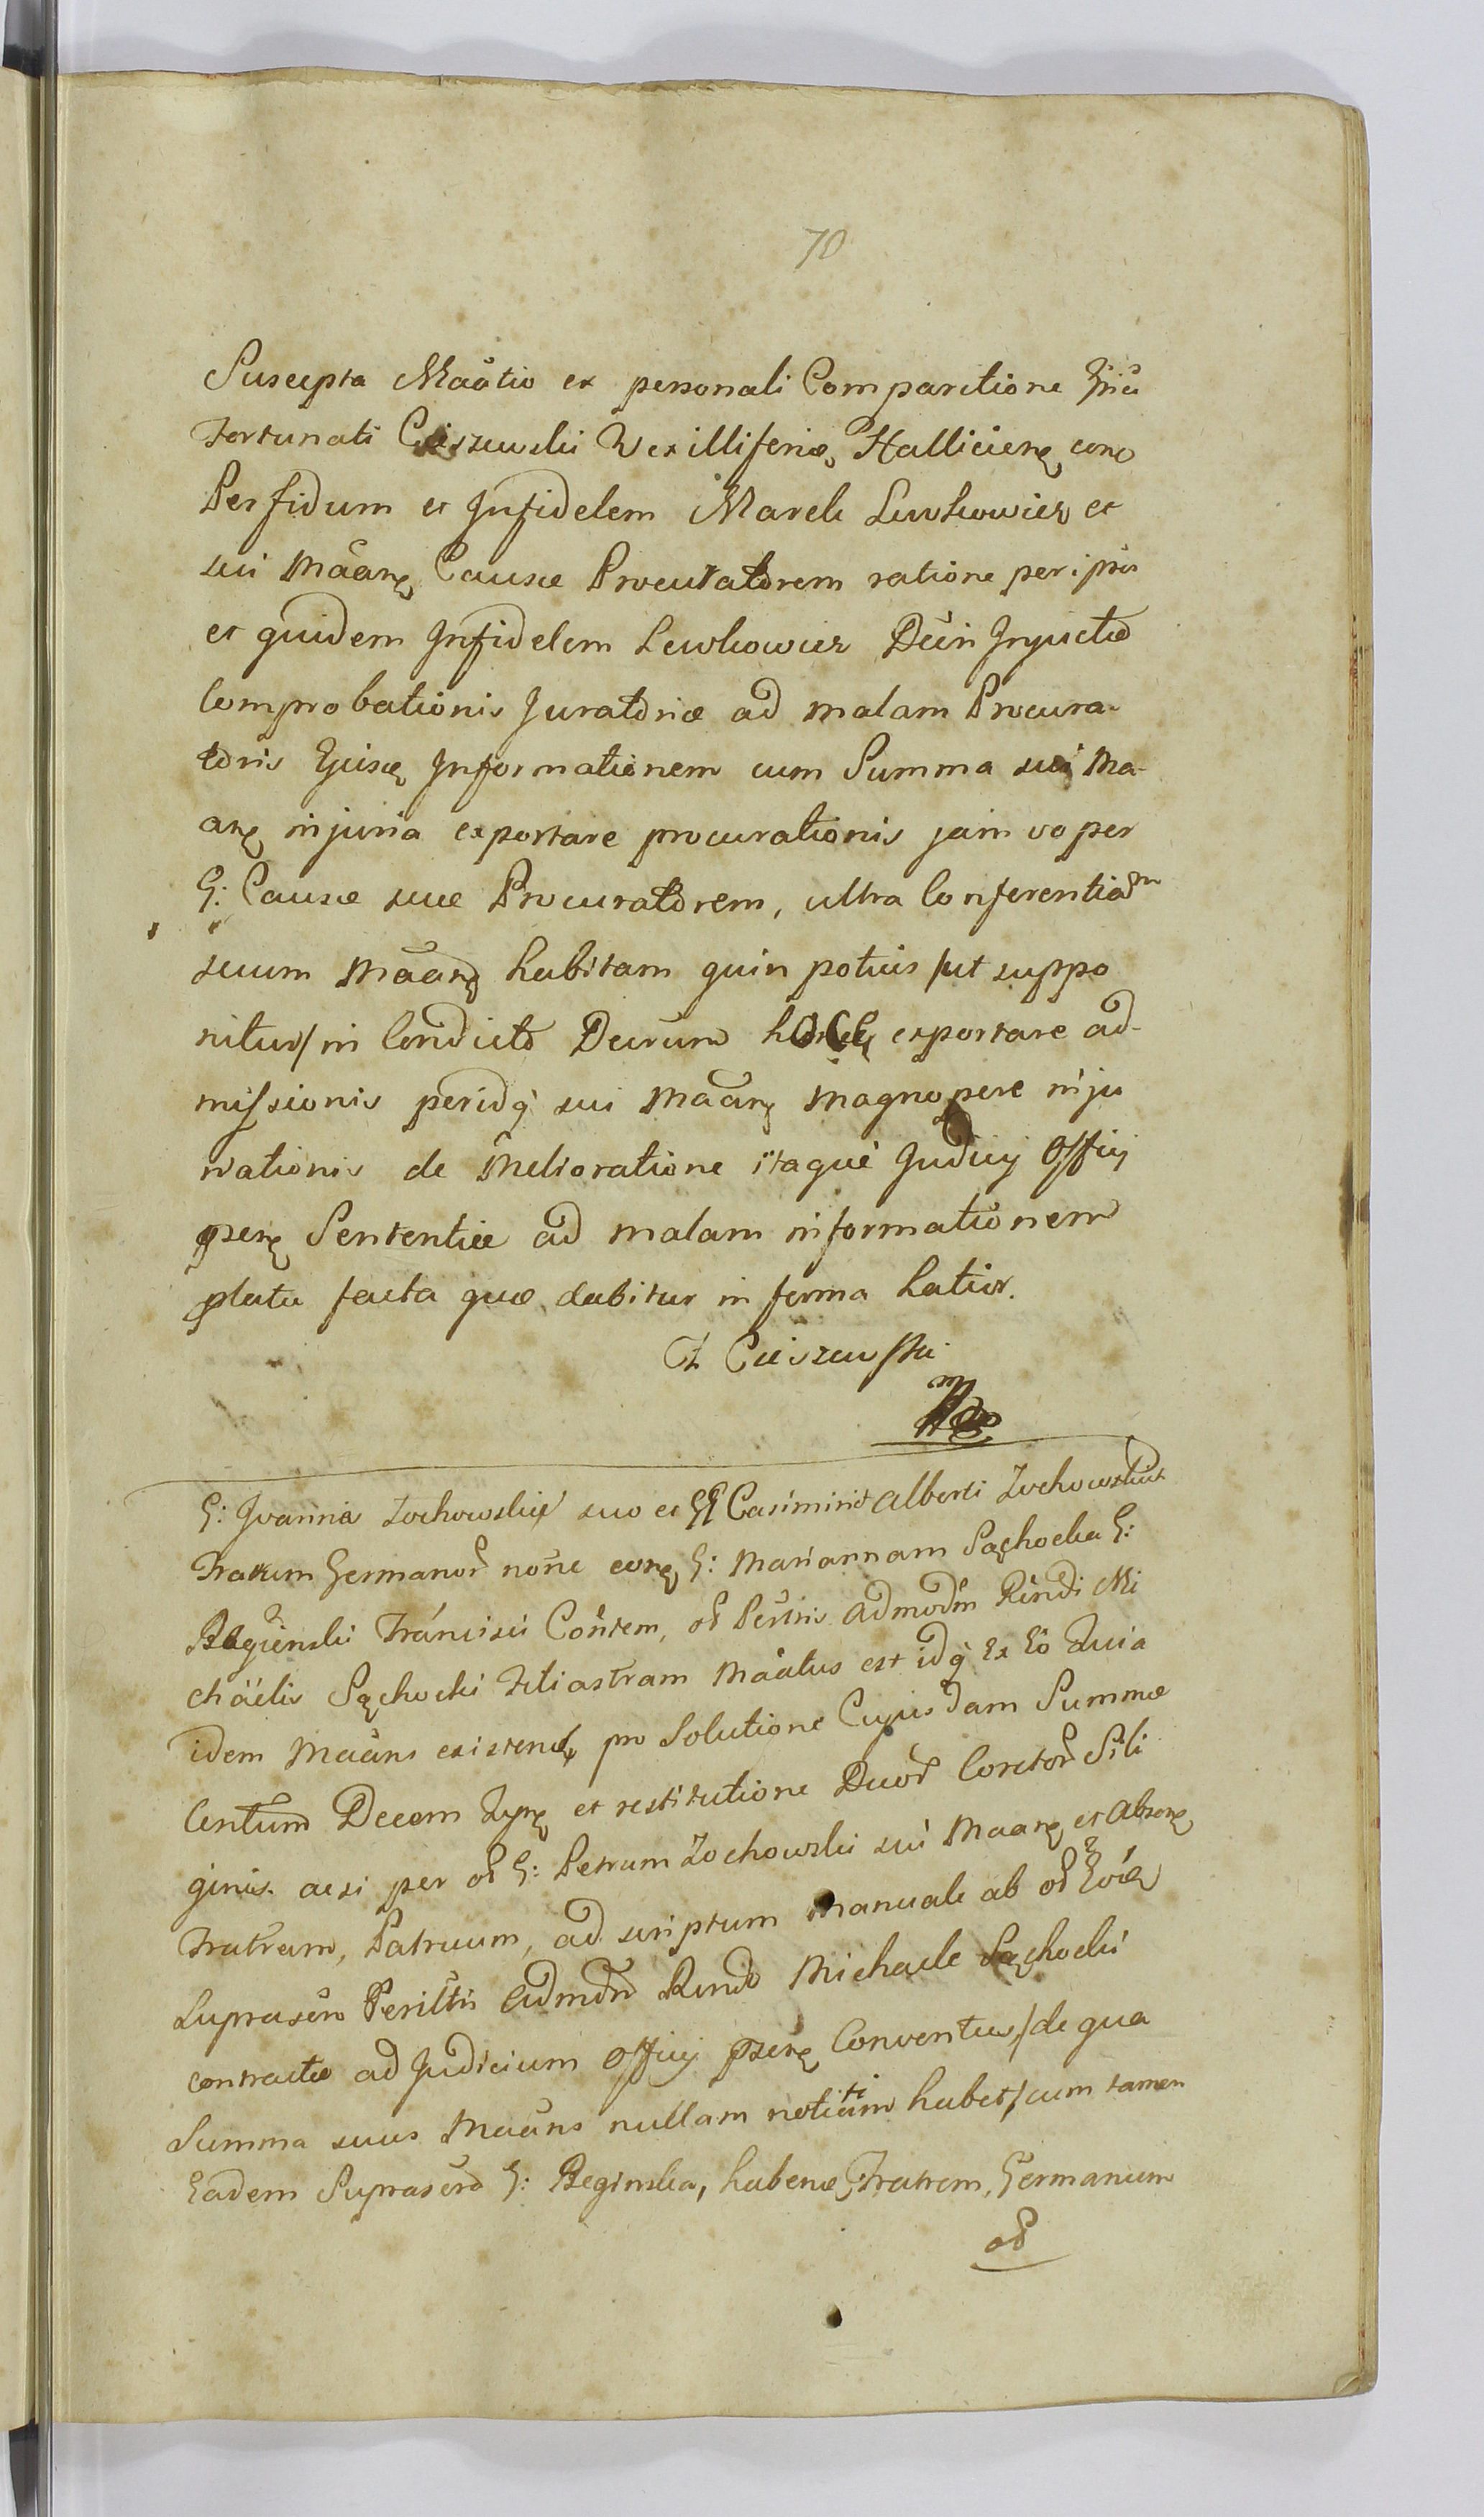 70
Suscepta Maatio ex personali Comparitione
Fortunati Cieszewski Vexilliferiæ Halliciensę con
Perfidum et Infidelem Marek Lewkowicz et
sui Maanę Causæ Procuratorem ratione per ipsos
et quidem Infidelem Lewkowicz Injuncto
Comprobationis Juratoriæ ad malam Procura-
toris Informationem cum Summa sui Ma-
anę injuria exportare procurationis jam vo per
G: Causæ suæ Procuratorem, ultra Conferentiam
suum Maanę habitam quin potius /ut suppo
nitur/ in Condicto exportare ad-
missionis peridq sui Maanę magnopere inju
riationis de Melioratione itaque Judicij Officij
psenę Sententiæ ad malam informationem
platæ facta quæ dabitur in forma Latior.
F Cieszewski
mp
G: Joannis Zochowskie suo et GG Casimiri et Alberti Zochowskich
Fratrum Germanor noñe conę G: Mariannam Sączhocka G:
Francisci Coñtem, od admodm Rñdi Mi
chäelis Filiastram Maatus est idq Ex Eo Quia
idem Maans existenę pro Solutione Cujusdam Summæ
Centum Decem et restitutione Duor Coretor Sili
ginis acsi per od G: Petrum Zochowski sui Maanę et
Fratrem, Patruum, ad scriptum manuale ab od
Suprascro Admdm Rnd Michaele
contracto ad Judicium Officij psenę Conventus, /de qua
Summa suus Maans nullam notitiam habet/ cum tamen
Eadem Suprascro G: Reginska, habenę Fratrem, Germanum
od